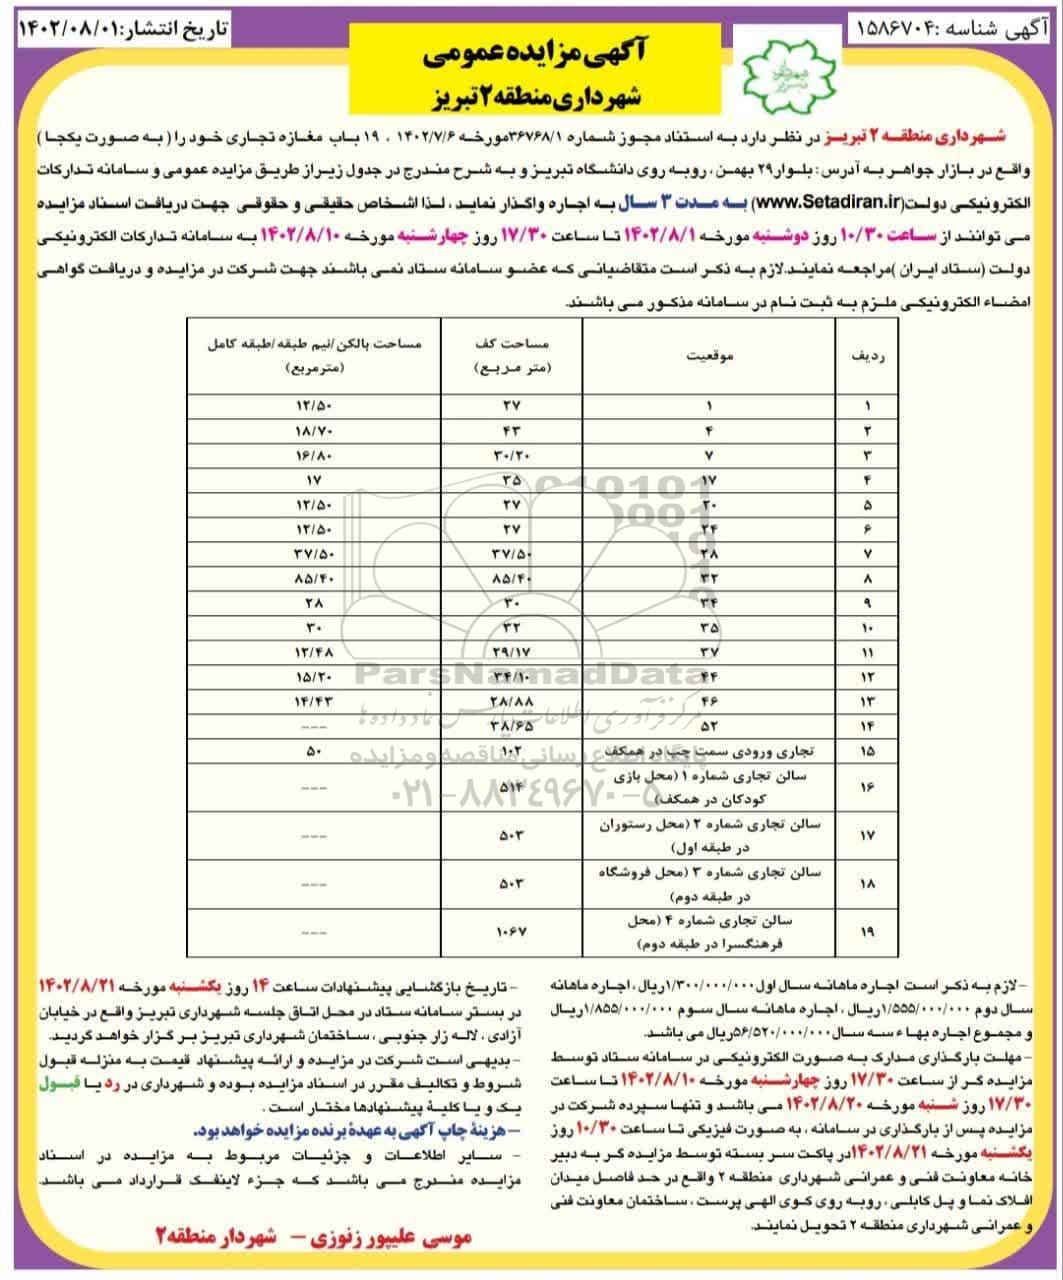 آگهی شناسه :۱۵۸۶۷۰۴
تاریخ انتشار:۱۴۰۲/۰۸/۰۱
آگهی مزایده عمومی
شهرداری منطقه ۲ تبریز
شهرداری منطقه ۲ تبریز در نظر دارد به استناد مجوز شماره ۳۶۷۶۸/۱مورخه ۱۴۰۲/۷/۶ ، ۱۹ باب مغازه تجاری خود را ( به صورت یکجا )
واقع در بازار جواهر به آدرس : بلوار۲۹ بهمن ، روبه روی دانشگاه تبریز و به شرح مندرج در جدول زیراز طریق مزایده عمومی و سامانه تدارکات
الکترونیکی دولت(www.Setadiran.ir) به مدت ۳ سال به اجاره واگذار نماید ، لذا اشخاص حقیقی و حقوقی جهت دریافت اسناد مزایده
می توانند از ساعت ۱۰/۳۰ روز دوشنبه مورخه ۱۴۰۲/۸/۱ تا ساعت ۱۷/۳۰ روز چهارشنبه مورخه ۱۴۰۲/۸/۱۰ به سامانه تدارکات الکترونیکی
دولت (ستاد ایران )مراجعه نمایند.لازم به ذکر است متقاضیانی که عضو سامانه ستاد نمی باشند جهت شرکت در مزایده و دریافت گواهی
امضاء الکترونیکی ملزم به ثبت نام در سامانه مذکور می باشند.
ردیف موقعیت مساحت کف (متر مربع) مساحت بالکن/نیم طبقه/طبقه کامل (مترمربع)
۱ ۱ ۲۷ ۱۲/۵۰
۲ ۴ ۴۳ ۱۸/۷۰
۳ ۷ ۳۰/۲۰ ۱۶/۸۰
۴ ۱۷ ۳۵ ۱۷
۵ ۲۰ ۲۷ ۱۲/۵۰
۶ ۲۴ ۲۷ ۱۲/۵۰
۷ ۲۸ ۳۷/۵۰ ۳۷/۵۰
۸ ۳۲ ۸۵/۴۰ ۸۵/۴۰
۹ ۳۴ ۳۰ ۲۸
۱۰ ۳۵ ۳۲ ۳۰
۱۱ ۳۷ ۲۹/۱۷ ۱۲/۴۸
۱۲ ۴۴ ۳۴/۱۰ ۱۵/۲۰
۱۳ ۴۶ ۲۸/۸۸ ۱۴/۴۳
۱۴ ۵۲ ۳۸/۶۵ ---
۱۵ تجاری ورودی سمت چپ در همکف ۱۰۲ ۵۰
۱۶ سالن تجاری شماره ۱ (محل بازی کودکان در همکف) ۵۱۴ ---
۱۷ سالن تجاری شماره ۲ (محل رستوران در طبقه اول) ۵۰۳ ---
۱۸ سالن تجاری شماره ۳ (محل فروشگاه در طبقه دوم) ۵۰۳ ---
۱۹ سالن تجاری شماره ۴ (محل فرهنگسرا در طبقه دوم) ۱۰۶۷ ---
ParsNamadData
مرکز فرآوری اطلاعات پارس نماد داده ها
پایگاه اطلاع رسانی مناقصه و مزایده
۰۲۱-۸۸۳۴۹۶۷۰-۵
-لازم به ذکر است اجاره ماهانه سال اول۱/۳۰۰/۰۰۰/۰۰۰ریال ، اجاره ماهانه
سال دوم ۱/۵۵۵/۰۰۰/۰۰۰ریال ، اجاره ماهانه سال سوم ۱/۸۵۵/۰۰۰/۰۰۰ریال
و مجموع اجاره بهاء سه سال۵۶/۵۲۰/۰۰۰/۰۰۰ریال می باشد.
- مهلت بارگذاری مدارک به صورت الکترونیکی در سامانه ستاد توسط
مزایده گر از ساعت ۱۷/۳۰ روز چهارشنبه مورخه ۱۴۰۲/۸/۱۰ تا ساعت
۱۷/۳۰ روز شنبه مورخه ۱۴۰۲/۸/۲۰ می باشد و تنها سپرده شرکت در
مزایده پس از بارگذاری در سامانه ، به صورت فیزیکی تا ساعت ۱۰/۳۰ روز
یکشنبه مورخه ۱۴۰۲/۸/۲۱در پاکت سر بسته توسط مزایده گر به دبیر
خانه معاونت فنی و عمرانی شهرداری منطقه ۲ واقع در حد فاصل میدان
افلاک نما و پل کابلی ، روبه روی کوی الهی پرست ، ساختمان معاونت فنی
و عمرانی شهرداری منطقه ۲ تحویل نمایند.
- تاریخ بازگشایی پیشنهادات ساعت ۱۴ روز یکشنبه مورخه ۱۴۰۲/۸/۲۱
در بستر سامانه ستاد در محل اتاق جلسه شهرداری تبریز واقع در خیابان
آزادی ، لاله زار جنوبی ، ساختمان شهرداری تبریز بر گزار خواهد گردید.
-بدیهی است شرکت در مزایده و ارائه پیشنهاد قیمت به منزله قبول
شروط و تکالیف مقرر در اسناد مزایده بوده و شهرداری در رد یا قبول
یک و یا کلیهٔ پیشنهادها مختار است .
-هزینهٔ چاپ آگهی به عهدهٔ برنده مزایده خواهد بود.
- سایر اطلاعات و جزئیات مربوط به مزایده در اسناد
مزایده مندرج می باشد که جزء لاینفک قرارداد می باشد.
موسی علیپور زنوزی - شهردار منطقه۲